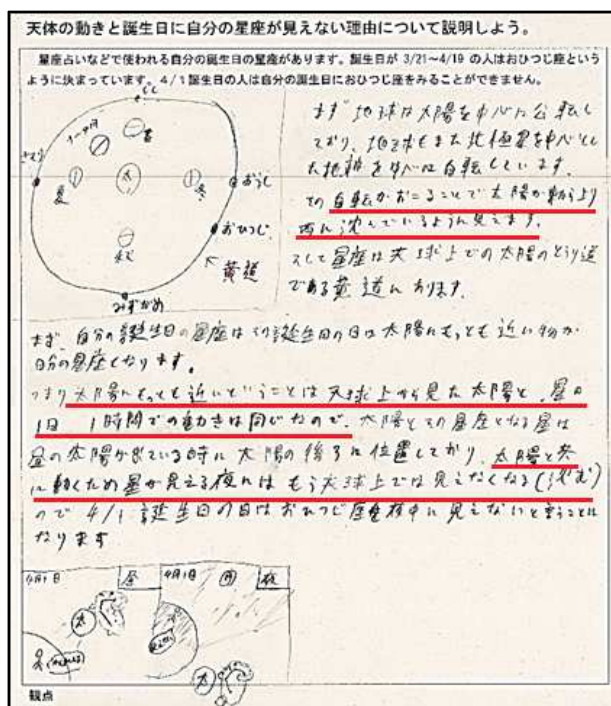 天体の動きと誕生日に自分の星座が見えない理由について説明しよう。
星座占いなどで使われる自分の誕生日の星座があります。誕生日が 3/21~4/19 の人はおひつじ座という
ように決まっています。4/1 誕生日の人は自分の誕生日におひつじ座をみることができません。
しし
春
さそり
夏
太
冬
おうし
秋
おひつじ
黄道
みずがめ
まず地球は太陽を中心に公転し
ており、地球もまた北極星を中心とし
た地軸を中心に自転しています。
その自転がおこることで太陽が東より
西に沈んでいるように見えます。
そして星座は天球上での太陽のとおり道
である黄道にあります。
まず、自分の誕生日の星座はその誕生日の日は太陽にもっとも近い物が
自分の星座となります。
つまり太陽にもっとも近いということは天球上から見た太陽と、星の
1日、1時間での動きは同じなので、太陽とその星座となる星は
昼の太陽が出ている時に太陽の後ろに位置しており、太陽と共
に動くため星が見える夜にはもう天球上では見えなくなる(沈む)
ので 4/1 誕生日の日はおひつじ座を夜中に見えないと言うことに
なります
4月1日
昼
4月1日
月
夜
太
太
観点